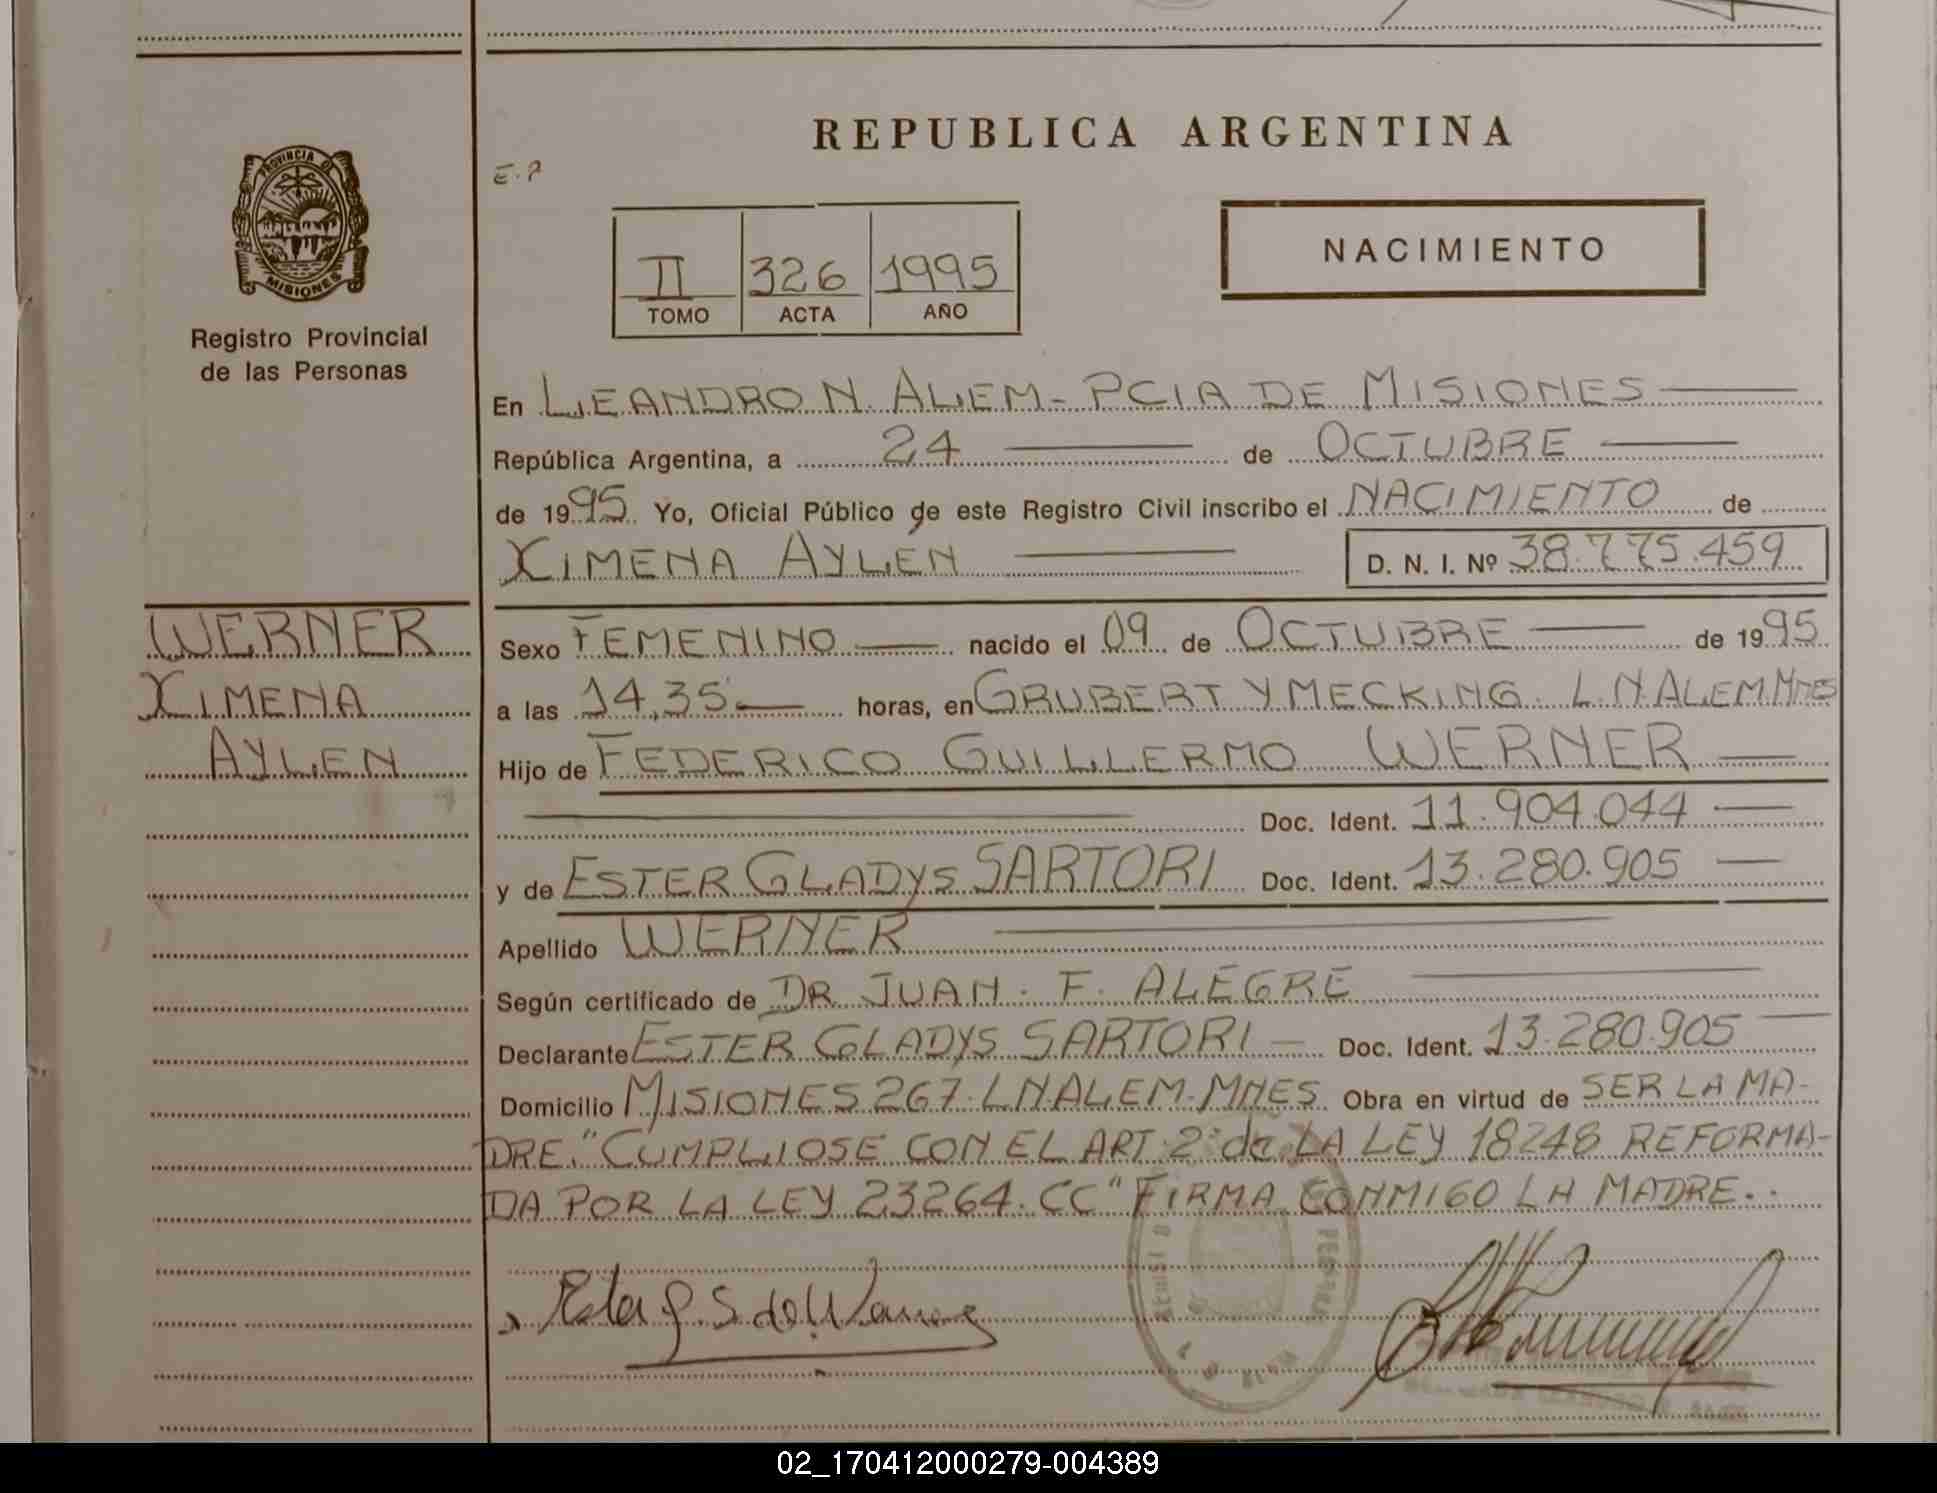 REPUBLICA ARGENTINA
PROVINCIA DE
MISIONES
Registro Provincial
de las Personas
II 326 1995
TOMO ACTA AÑO
NACIMIENTO
En LEANDRO N. ALEM - PCIA DE MISIONES
República Argentina, a 24 de OCTUBRE
de 1995 Yo, Oficial Público de este Registro Civil inscribo el NACIMIENTO de
XIMENA AYLEN D. N. I. Nº 38.775.459
WERNER
XIMENA
AYLEN
Sexo FEMENINO nacido el 09 de OCTUBRE de 1995
a las 14,35 horas, en GRUBERT Y MECKING. L.N.ALEM.MNES
Hijo de FEDERICO GUILLERMO WERNER
Doc. Ident. 11.904.044
y de ESTER GLADYS SARTORI Doc. Ident. 13.280.905
Apellido WERNER
Según certificado de DR JUAN. F. ALEGRE
Declarante ESTER GLADYS SARTORI Doc. Ident. 13.280.905
Domicilio MISIONES 267. LNALEM-MNES Obra en virtud de SER LA MA-
DRE. "CUMPLIOSE CON EL ART. 2º de LA LEY 18248 REFORMA-
DA POR LA LEY 23264. CC" FIRMA CONMIGO LA MADRE.
02_170412000279-004389